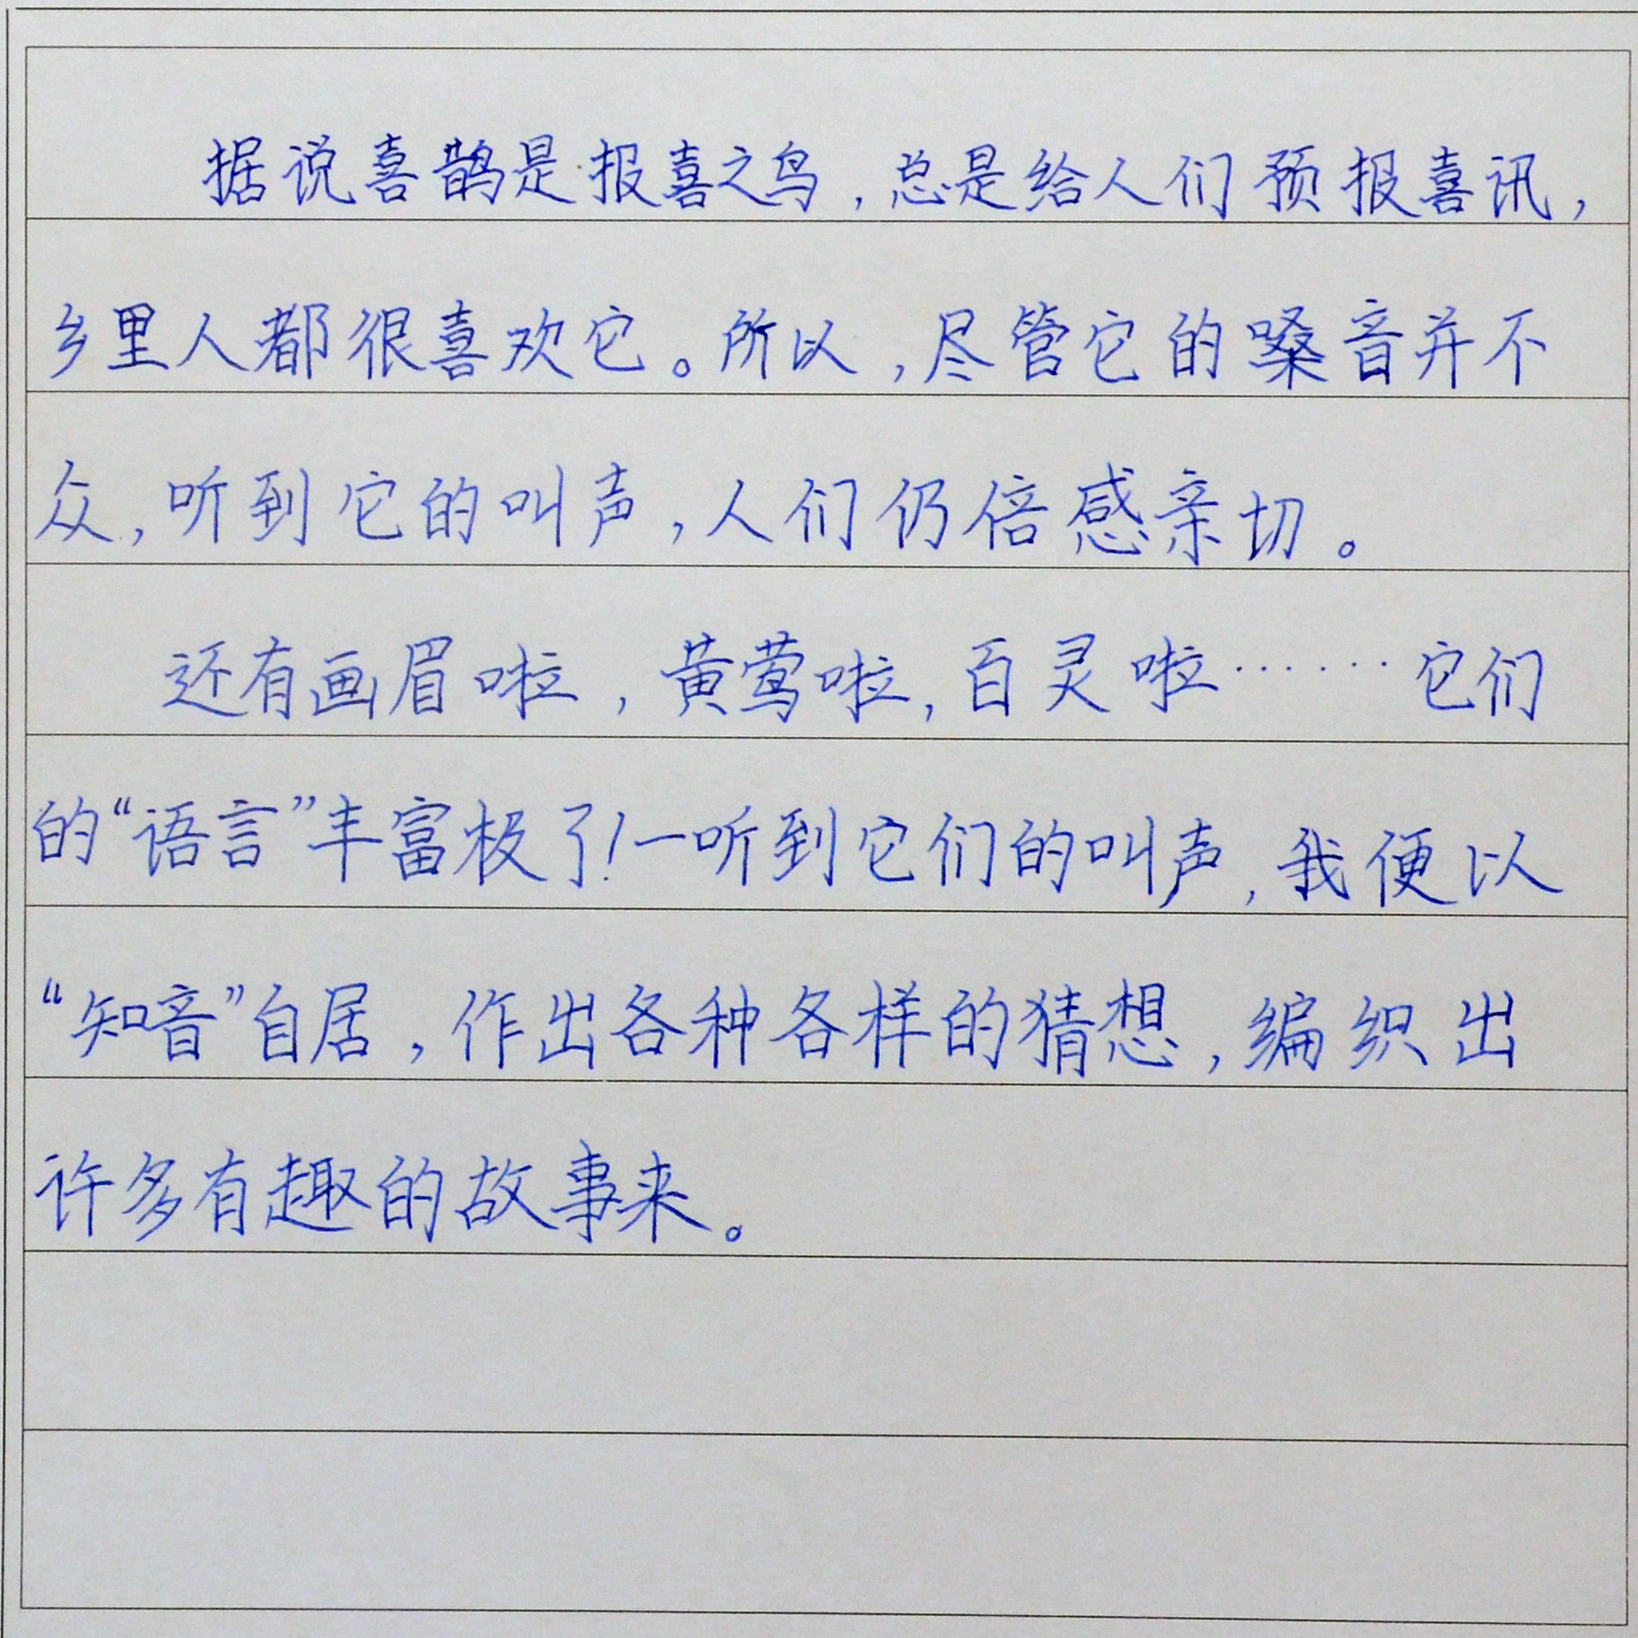 据说喜鹊是报喜之鸟，总是给人们预报喜讯，
乡里人都很喜欢它。所以，尽管它的嗓音并不
众，听到它的叫声，人们仍倍感亲切。
还有画眉啦，黄莺啦，百灵啦……它们
的“语言”丰富极了！一听到它们的叫声，我便以
“知音”自居，作出各种各样的猜想，编织出
许多有趣的故事来。